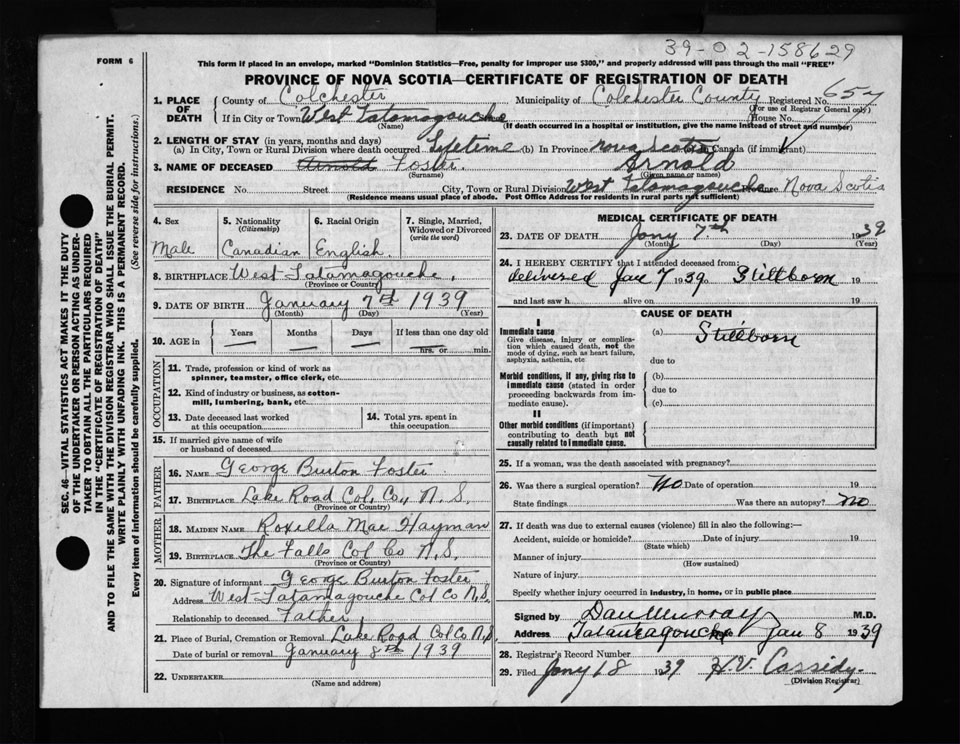 39-02-158629
FORM 6
This form if placed in an envelope, marked "Dominion Statistics—Free, penalty for improper use $300," and properly addressed will pass through the mail "FREE"
PROVINCE OF NOVA SCOTIA—CERTIFICATE OF REGISTRATION OF DEATH
1. PLACE OF DEATH
County of Colchester Municipality of Colchester County Registered No. 657
(For use of Registrar General only)
If in City or Town West Tatamagouche House No.
(Name) (If death occurred in a hospital or institution, give the name instead of street and number)
2. LENGTH OF STAY (in years, months and days)
(a) In City, Town or Rural Division where death occurred Lifetime (b) In Province Nova Scotia (c) In Canada (if immigrant)
3. NAME OF DECEASED Arnold Foster Arnold
(Surname) (Given name or names)
RESIDENCE No. Street City, Town or Rural Division West Tatamagouche Province Nova Scotia
(Residence means usual place of abode. Post Office Address for residents in rural parts not sufficient)
4. Sex
Male
5. Nationality
(Citizenship)
Canadian
6. Racial Origin
English
7. Single, Married, Widowed or Divorced
(write the word)
8. BIRTHPLACE West Tatamagouche,
(Province or Country)
9. DATE OF BIRTH January 7th 1939
(Month) (Day) (Year)
10. AGE in
Years Months Days If less than one day old
— — — — hrs. or min.
OCCUPATION
11. Trade, profession or kind of work as
spinner, teamster, office clerk, etc.
12. Kind of industry or business, as cotton-
mill, lumbering, bank, etc.
13. Date deceased last worked
at this occupation
14. Total yrs. spent in
this occupation
15. If married give name of wife
or husband of deceased
FATHER
16. NAME George Burton Foster
17. BIRTHPLACE Lake Road Col. Co., N.S.
(Province or Country)
MOTHER
18. MAIDEN NAME Roxilla Mae Hayman
19. BIRTHPLACE The Falls Col Co N.S.
(Province or Country)
20. Signature of informant George Burton Foster
Address West Tatamagouche Col Co N.S.
Relationship to deceased Father
21. Place of Burial, Cremation or Removal Lake Road Col Co N.S.
Date of burial or removal January 8th 1939
22. UNDERTAKER
(Name and address)
MEDICAL CERTIFICATE OF DEATH
23. DATE OF DEATH Jany 7th 1939
(Month) (Day) (Year)
24. I HEREBY CERTIFY that I attended deceased from:
delivered Jan 7 1939 Stillborn 19
and last saw h alive on 19
CAUSE OF DEATH
I
Immediate cause
Give disease, injury or complication which caused death, not the mode of dying, such as heart failure, asphyxia, asthenia, etc
(a) Stillborn
due to
Morbid conditions, if any, giving rise to immediate cause (stated in order proceeding backwards from immediate cause).
(b)
due to
(c)
II
Other morbid conditions (if important) contributing to death but not causally related to immediate cause.
25. If a woman, was the death associated with pregnancy?
26. Was there a surgical operation? No Date of operation 19
State findings Was there an autopsy? no
27. If death was due to external causes (violence) fill in also the following:—
Accident, suicide or homicide? Date of injury 19
(State which)
Manner of injury
(How sustained)
Nature of injury
Specify whether injury occurred in industry, in home, or in public place
Signed by Dan Murray M.D.
Address Tatamagouche Jan 8 1939
28. Registrar's Record Number
29. Filed Jany 18 1939 H.V. Cassidy.
(Division Registrar)
SEC. 46—VITAL STATISTICS ACT MAKES IT THE DUTY
OF THE UNDERTAKER OR PERSON ACTING AS UNDER-
TAKER TO OBTAIN ALL THE PARTICULARS REQUIRED
IN THE "CERTIFICATE OF REGISTRATION OF DEATH"
AND TO FILE THE SAME WITH THE DIVISION REGISTRAR WHO SHALL ISSUE THE BURIAL PERMIT.
WRITE PLAINLY WITH UNFADING INK. THIS IS A PERMANENT RECORD.
Every item of information should be carefully supplied. (See reverse side for instructions.)